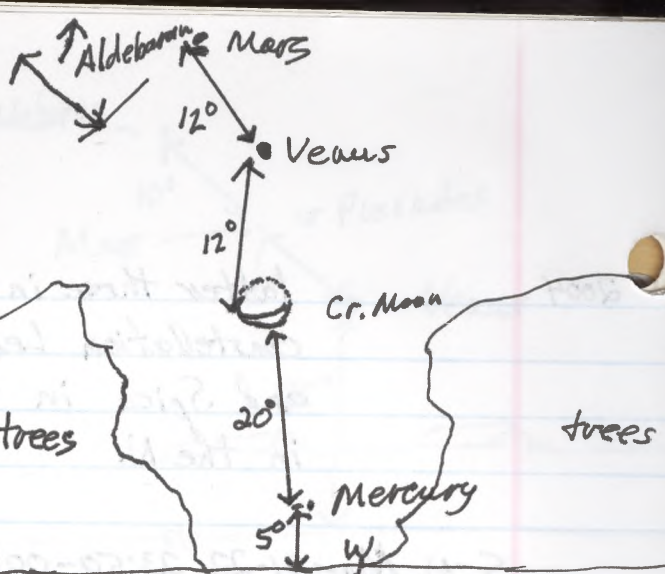 Aldebaran
Mars
12°
Venus
12°
Cr. Moon
trees
20°
trees
Mercury
5°
W